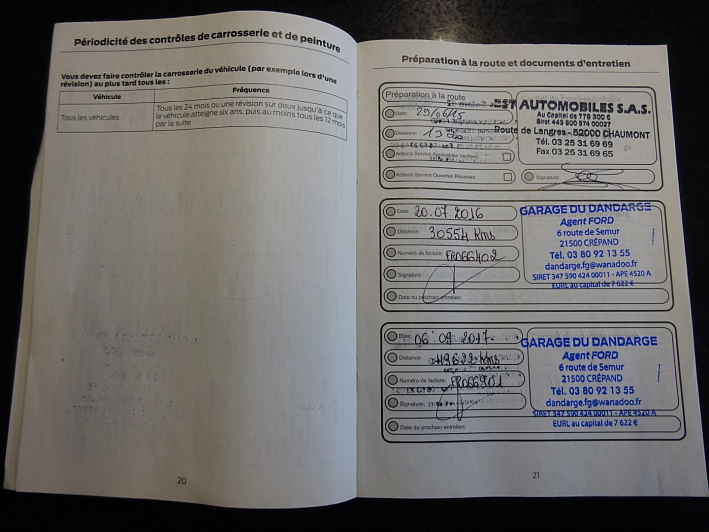 Périodicité des contrôles de carrosserie et de peinture
Vous devez faire contrôler la carrosserie du véhicule (par exemple lors d'une
révision) au plus tard tous les :
Véhicule
Fréquence
Tous les véhicules
Tous les 24 mois ou une révision sur deux jusqu'à ce que
le véhicule atteigne six ans, puis au moins tous les 12 mois
par la suite
20
Préparation à la route et documents d'entretien
Préparation à la route
Date: 29/06/15
Distance:
Actions Service Applicables Vérifiées
Actions Service Ouvertes Récentes
Signature:
EST AUTOMOBILES S.A.S.
Au Capital de 778 300 €
Siret 443 800 574 00037
Route de Langres - 52000 CHAUMONT
Tél. 03 25 31 69 69
Fax 03 25 31 69 65
Date: 20.07.2016
Distance: 30554 Kms
Numéro de facture: FR066402
Signature:
Date du prochain entretien:
GARAGE DU DANDARGE
Agent FORD
6 route de Semur
21500 CRÉPAND
Tél. 03 80 92 13 55
dandarge.fg@wanadoo.fr
SIRET 347 590 424 00011 - APE 4520 A
EURL au capital de 7 622 €
Date: 06.09.2017
Distance: 49622 Kms
Numéro de facture: FR066901
Signature:
Date du prochain entretien:
GARAGE DU DANDARGE
Agent FORD
6 route de Semur
21500 CRÉPAND
Tél. 03 80 92 13 55
dandarge.fg@wanadoo.fr
SIRET 347 590 424 00011 - APE 4520 A
EURL au capital de 7 622 €
21